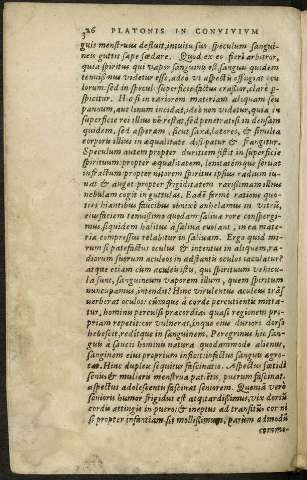 326 PLATONIS IN CONVIVIVM
guis menstruus defluit, intuitu suo speculum sangui-
neis guttis sæpe fœdare. Quod ex eo fieri arbitror,
quia spiritus qui vapor sanguinis est, sanguis quidam
tenuissimus videtur esse, adeo vt aspectū effugiat ocu
lorum: sed in speculi superficie factus crassior, clare p-
spicitur. Hic si in rariorem materiam aliquam seu
pannum, aut lignum incidat, ideo non videtur, quia in
superficie rei illius nō restat, sed penetrat: si in densam
quidem, sed asperam, sicut saxa, lateres, & similia
corporis illius in æqualitate dissipatur & frangitur.
Speculum autem propter duritiem sistit in superficie
spiritum: propter æqualitatem, lenitatémque seruat
infractum: propter nitorem spiritus ipsius radium iu-
uat & auget: propter frigiditatem rarissimam illius
nebulam cogit in guttulas. Eadē fermè ratione quo-
ties hiantibus faucibus obnixè anhelamus in vitrū,
eius faciem tenuissimo quodam saliuæ rore conspergi-
mus, siquidem halitus à saliua euolans, in ea mate-
ria compressus relabitur in saliuam. Ergo quid mi-
rum si patefactus oculus & intentus in aliquem, ra-
diorum suorum aculeos in adstantis oculos iaculatur?
atque etiam cum aculeis istis, qui spirituum vehicu-
la sunt, sanguineum vaporem illum, quem spiritum
nuncupamus, intendit? Hinc virulentus aculeus trās
uerberat oculos: cúmque à corde percutientis mitta-
tur, hominis perculsi præcordia quasi regionem pro-
priam repetit: cor vulnerat, inque eius duriori dorso
hebescit, reditque in sanguinem. Peregrinus hic san-
guis à saucij hominis natura quodammodo alienus,
sanginem eius proprium inficit: infectus sanguis ægro-
tat. Hinc duplex sequitur fascinatio. Aspectus fœtidi
senis & mulieris menstrua patētis, puerum fascinat.
aspectus adolescentis fascinat seniorem. Quoniā verò
senioris humor frigidus est atq; tardissimus, vix dorsū
cordis attingit in pueris: & ineptus ad transitū cor ni
si propter infantiam sit mollissimum, parum admodū
comme-